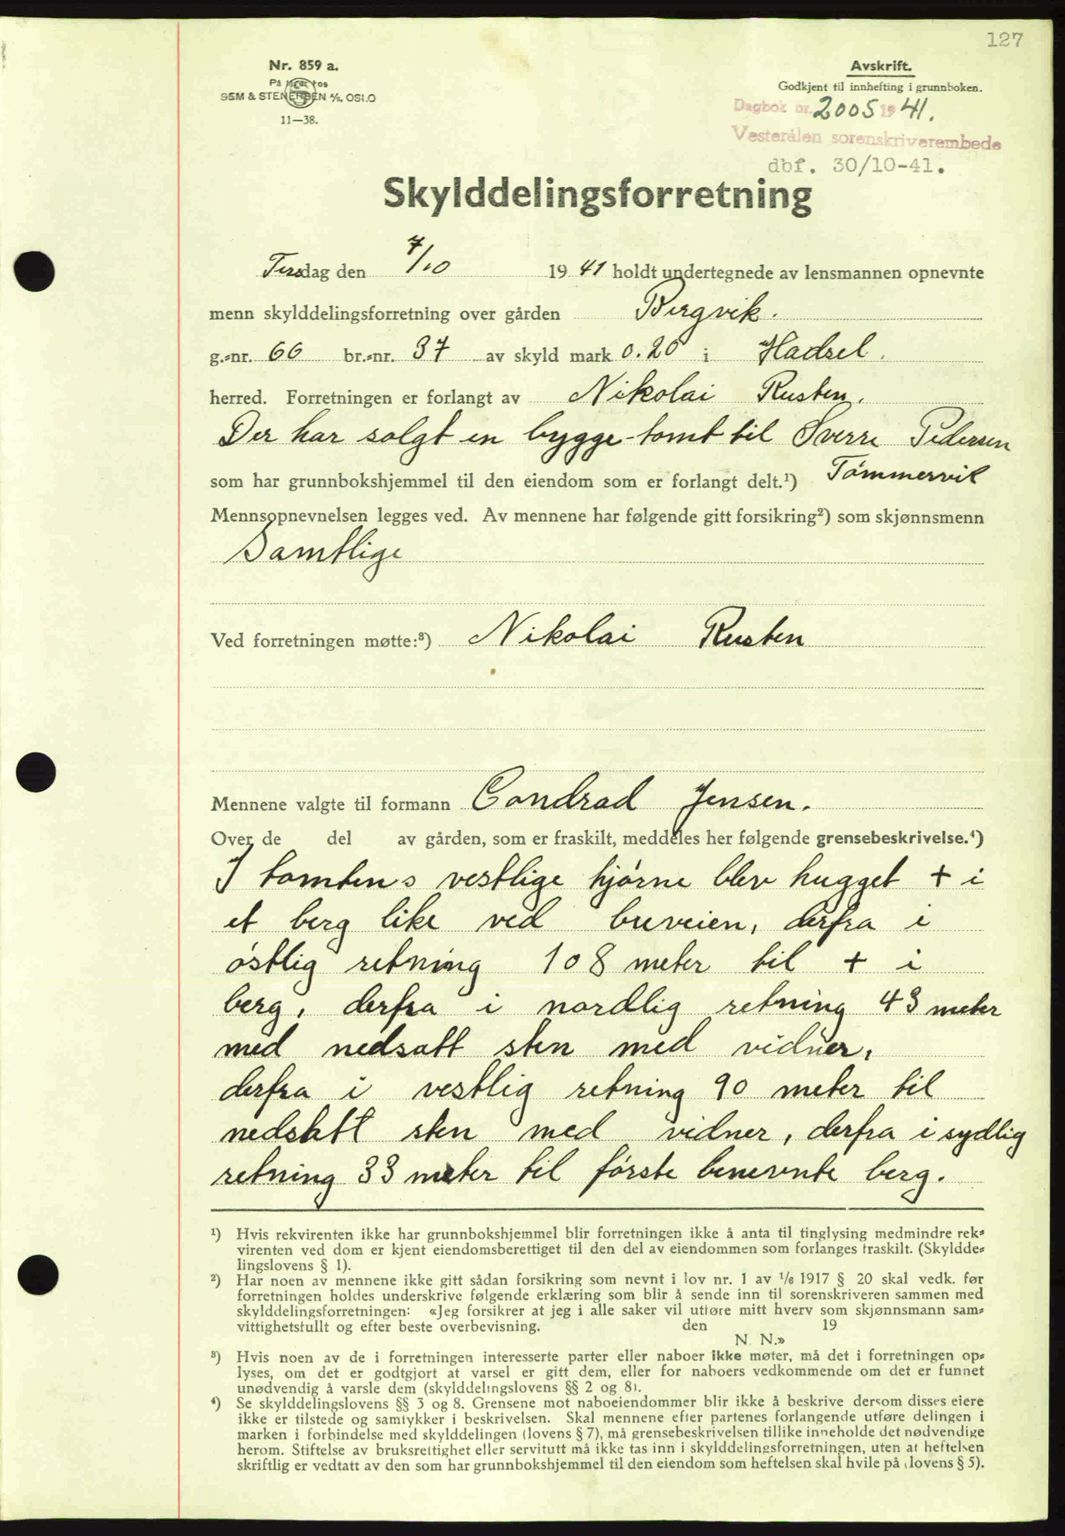 127
Nr. 859 a.
På lager hos
SEM & STENERSEN A/S, OSLO
11—38.
Avskrift.
Godkjent til innhefting i grunnboken.
Dagbok nr. 2005 1941.
Vesterålen sorenskriverembede
dbf. 30/10-41.
Skylddelingsforretning
Tirsdag den 7/10 1941 holdt undertegnede av lensmannen opnevnte
menn skylddelingsforretning over gården Bergvik.
g.-nr. 66 br.-nr. 37 av skyld mark 0.20 i Hadsel.
herred. Forretningen er forlangt av Nikolai Rusten.
Der har solgt en bygge-tomt til Sverre Pedersen
som har grunnbokshjemmel til den eiendom som er forlangt delt.¹) Tømmervik
Mennsopnevnelsen legges ved. Av mennene har følgende gitt forsikring²) som skjønnsmenn
Samtlige
Ved forretningen møtte:³) Nikolai Rusten
Mennene valgte til formann Condrad Jensen.
Over de del av gården, som er fraskilt, meddeles her følgende grensebeskrivelse.⁴)
I tomtens vestlige hjørne blev hugget + i
et berg like ved bureien, derfra i
østlig retning 108 meter til + i
berg, derfra i nordlig retning 43 meter
med nedsatt sten med vidner,
derfra i vestlig retning 90 meter til
nedsatt sten med vidner, derfra i sydlig
retning 33 meter til første benevnte berg.
¹) Hvis rekvirenten ikke har grunnbokshjemmel blir forretningen ikke å anta til tinglysing medmindre rek-
virenten ved dom er kjent eiendomsberettiget til den del av eiendommen som forlanges fraskilt. (Skyldde-
lingslovens § 1).
²) Har noen av mennene ikke gitt sådan forsikring som nevnt i lov nr. 1 av 1/6 1917 § 20 skal vedk. før
forretningen holdes underskrive følgende erklæring som blir å sende inn til sorenskriveren sammen med
skylddelingsforretningen: «Jeg forsikrer at jeg i alle saker vil utføre mitt hverv som skjønnsmann sam-
vittighetsfullt og efter beste overbevisning. den 19
N. N.»
³) Hvis noen av de i forretningen interesserte parter eller naboer ikke møter, må det i forretningen op-
lyses, om det er godtgjort at varsel er gitt dem, eller for naboers vedkommende om det er funnet
unødvendig å varsle dem (skylddelingslovens §§ 2 og 8).
⁴) Se skylddelingslovens §§ 3 og 8. Grensene mot naboeiendommer blir ikke å beskrive dersom disses eiere
ikke er tilstede og samtykker i beskrivelsen. Skal mennene efter partenes forlangende utføre delingen i
marken i forbindelse med skylddelingen (lovens § 7), må grensebeskrivelsen tillike inneholde det nødvendige
herom. Stiftelse av bruksrettighet eller servitutt må ikke tas inn i skylddelingsforretningen, uten at heftelsen
skriftlig er vedtatt av den som har grunnbokshjemmel til den eiendom som heftelsen skal hvile på (lovens § 5).